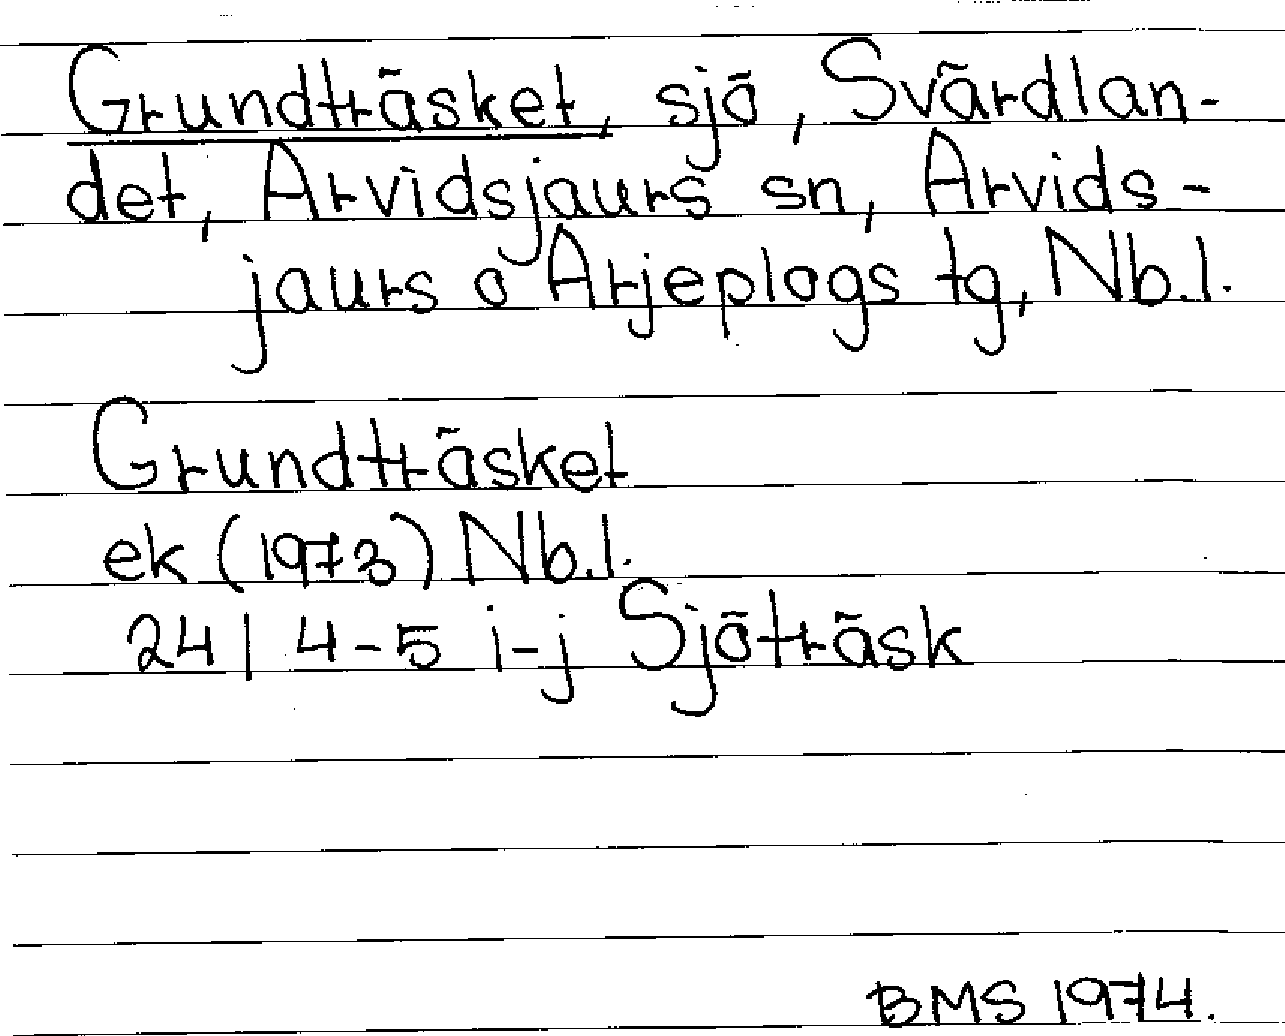 Grundträsket, sjö, Svärdlan-
det, Arvidsjaurs sn, Arvids-
jaurs o Arjeplogs tg, Nb.l.
Grundträsket
ek (1973) Nb.l.
24 I 4-5 i-j Sjöträsk
BMS 1974.